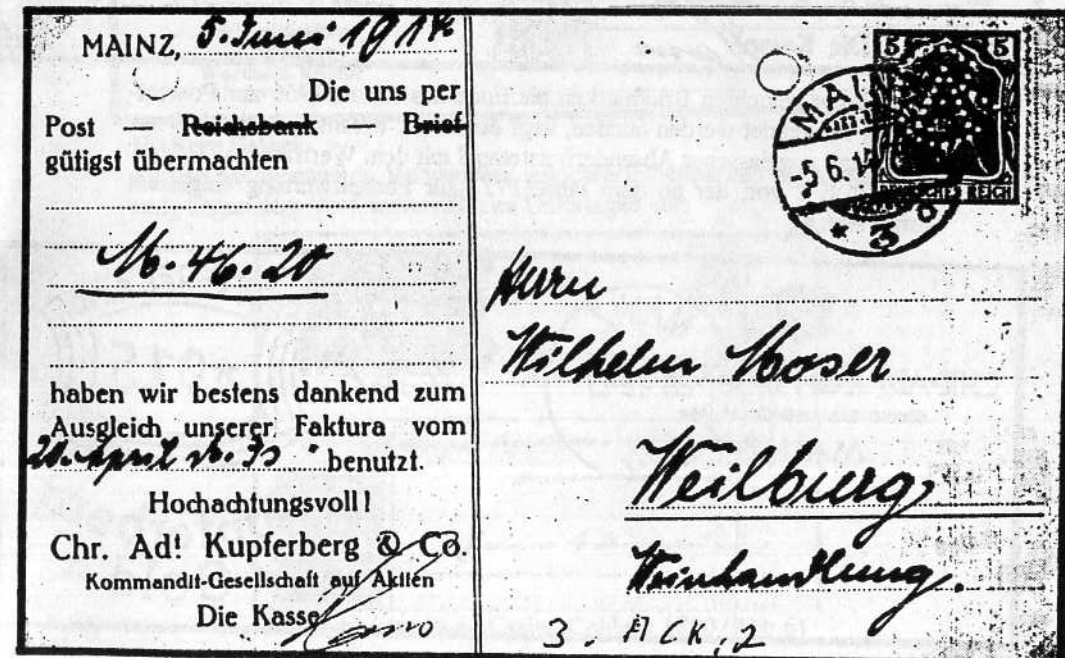 MAINZ, 5. Juni 1914
Die uns per
Post — Reichsbank Brief
gütigst übermachten
M. 46. 20
haben wir bestens dankend zum
Ausgleich unserer Faktura vom
20. April benutzt.
Hochachtungsvoll!
Chr. Adt Kupferberg & Co.
Kommandit-Gesellschaft auf Aktien
Die Kasse
5 5
DEUTSCHES REICH
MAINZ
-5.6.14
* 3
Herrn
Wilhelm Moser
Weilburg,
Weinhandlung.